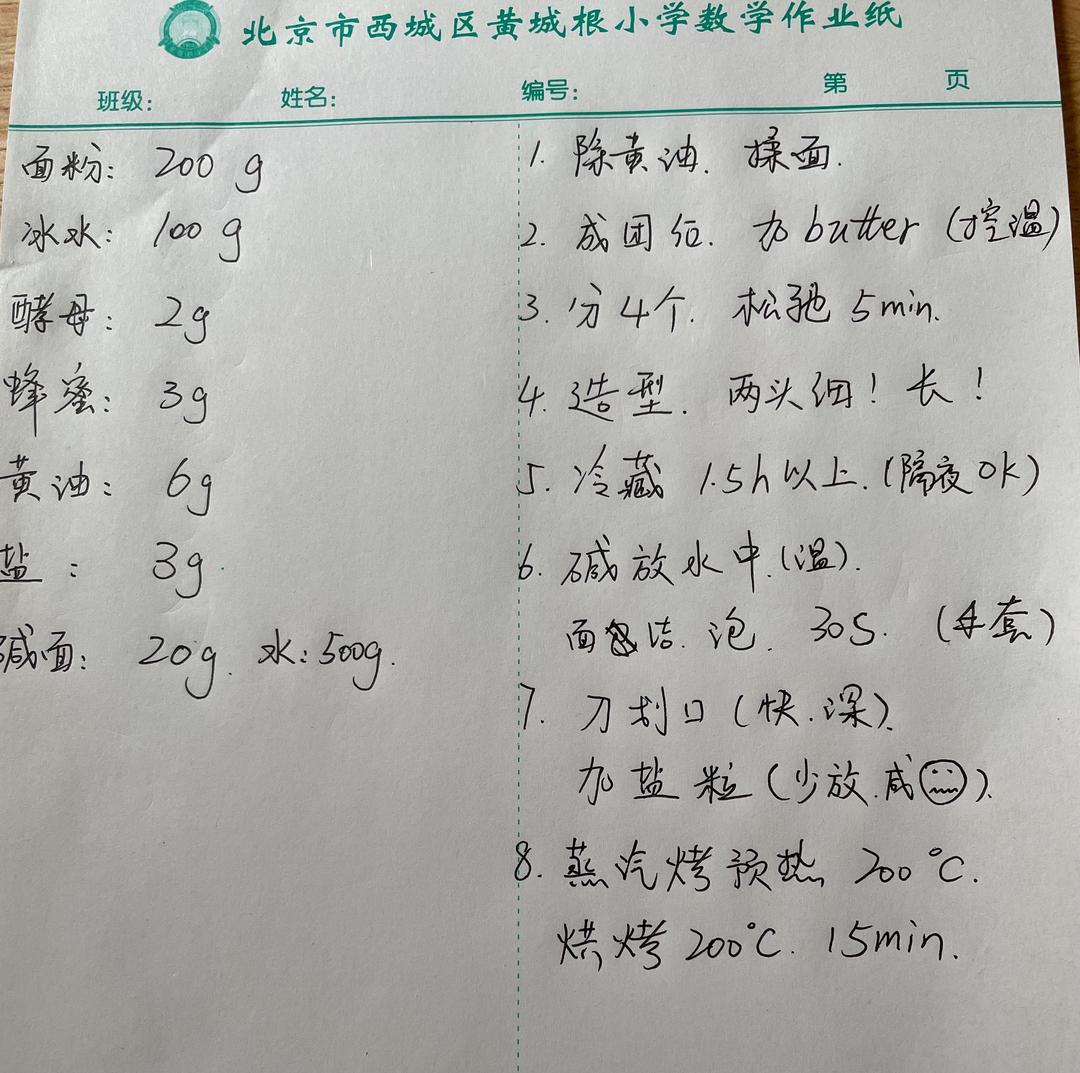 北京市西城区黄城根小学数学作业纸
班级: 姓名: 编号: 第 页
面粉: 200 g
冰水: 100 g
酵母: 2g
蜂蜜: 3g
黄油: 6g
盐: 3g.
碱面: 20g. 水: 500g.
1. 除黄油. 揉面.
2. 成团后. 加 butter (控温)
3. 分4个. 松弛 5min.
4. 造型. 两头细! 长!
5. 冷藏 1.5h以上. (隔夜OK)
6. 碱放水中.(温).
面 . 泡. 30S. (手套)
7. 刀划口 (快.深).
加盐粒 (少放.咸).
8. 蒸汽烤预热 200℃.
烘烤 200℃. 15min.